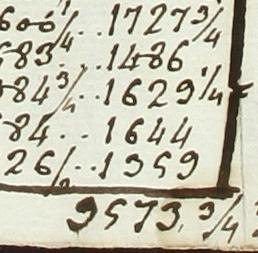 600 1/4 .. 1727 3/4
683 .. 1486
484 3/4 .. 1629 1/4
84 .. 1644
26/2 .. 1359
9573. 3/4